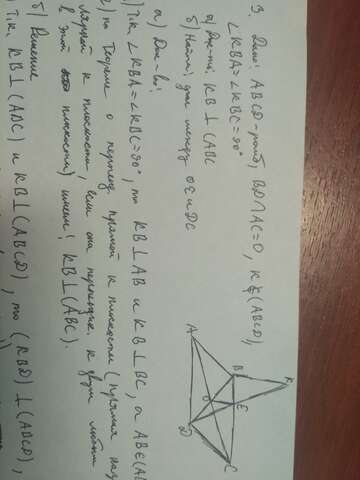 3. Дано: ABCD-ромб, BD∩AC=O, K∉(ABCD),
∠KBA=∠KBC=90°
а) Док-ть: KB⊥(ABC
б) Найти: угол между OE и DC
а) Док-во:
) т.к. ∠KBA=∠KBC=90°, то KB⊥AB и KB⊥BC, а AB∈(AB
2) по Теореме о перпенд. прямой к плоскости (прямая наз
к плоскости, если она перпендик. к двум любым
в этой плоскости) имеем: KB⊥(ABC).
б) Решение
) т.к. KB⊥(ABC) и KB⊥(ABCD), то (KBD)⊥(ABCD),
A
B
K
O
E
D
C